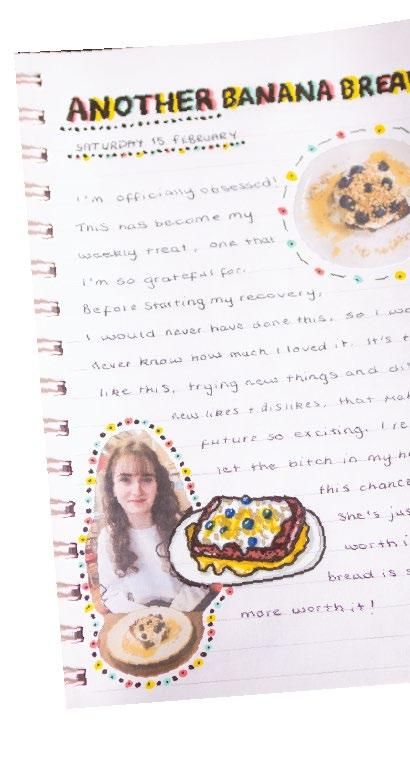 ANOTHER BANANA BREA
SATURDAY 15 FEBRUARY
I'm officially obsessed!
This has become my
weekly treat, one that
I'm so grateful for.
Before starting my recovery,
I would never have done this, so I wo
never know how much I loved it. It's t
like this, trying new things and di
new likes + dislikes, that mak
future so exciting. I re
let the bitch in my he
this chance
She's jus
worth i
bread is s
more worth it!